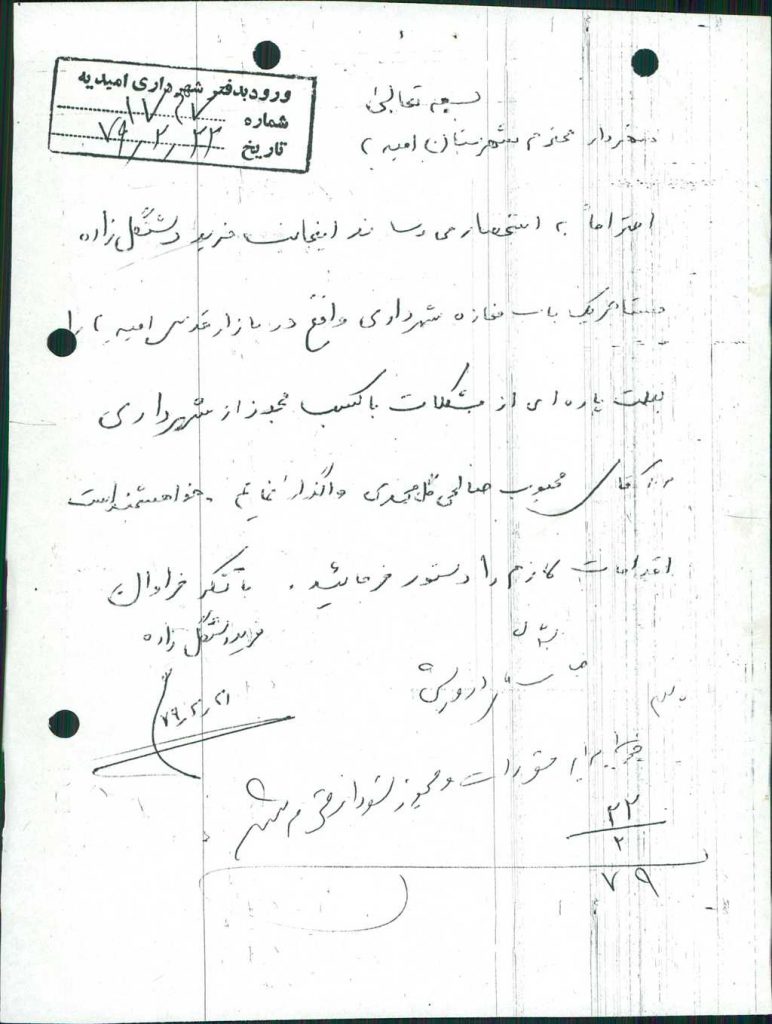 ورود بدفتر شهرداری امیدیه
شماره ۱۷۶۷
تاریخ ۷۹,۲,۲۲
بسمه تعالی
شهردار محترم شهرستان امیدیه
احتراماً به استحضار می رساند اینجانب فرید دشتگل زاده
مستأجر یک باب مغازه شهرداری واقع در بازار قدس امیدیه را
بعلت پاره ای از مشکلات با کسب مجوز از شهرداری
به آقای محبوب صالحی گل محمدی واگذار نمایم . خواهشمند است
اقدامات لازم را دستور فرمائید . با تشکر فراوان
فرید دشتگل زاده
۷۹,۲,۲۱
برابر مقررات و مجوز شورا
۲۲
۲
۷۹